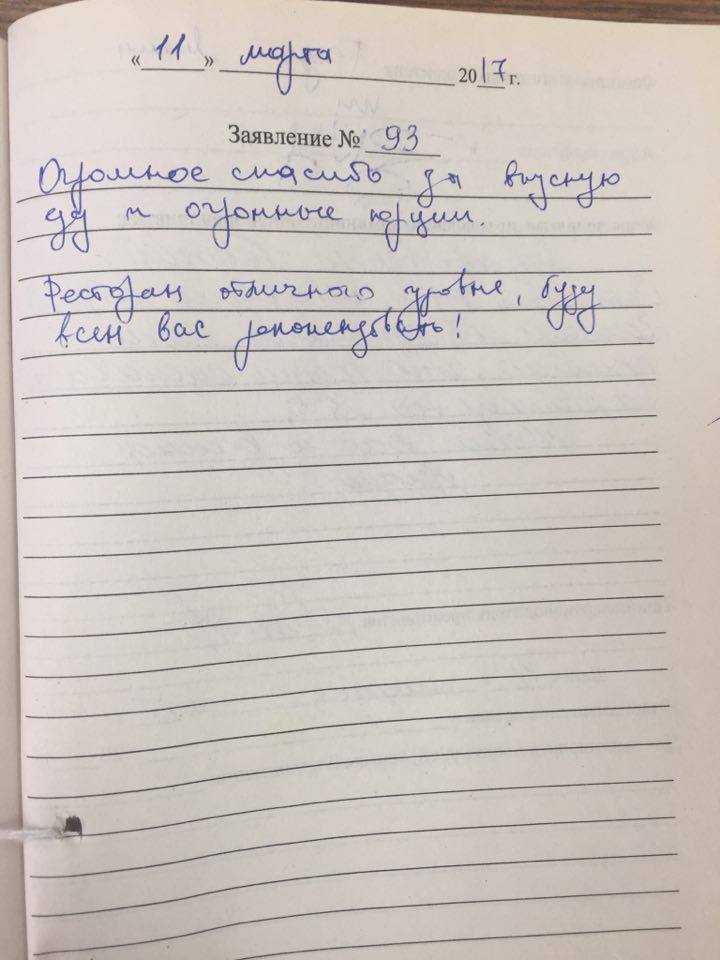 «11» марта 2017 г.
Заявление № 93
Огромное спасибо за вкусную
еду и огромные порции.
Ресторан отличного уровня, буду
всем вас рекомендовать!